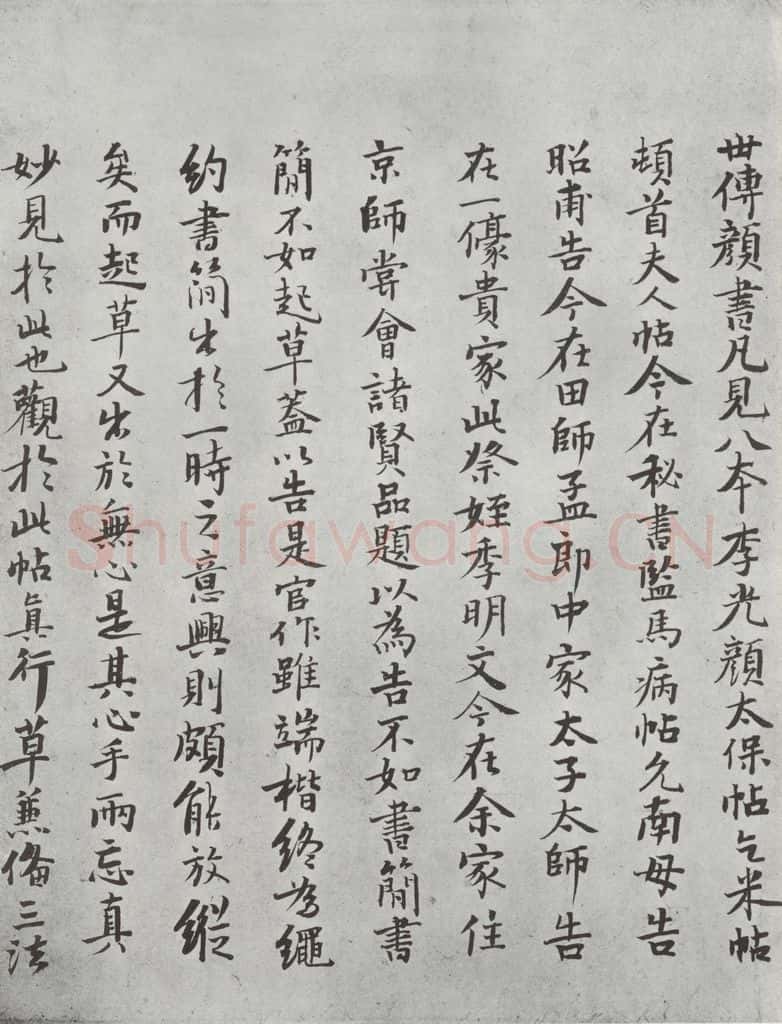 世傳顏書凡見八本李光顏太保帖乞米帖
頓首夫人帖今在秘書監馬病帖允南母告
昭甫告今在田師孟郎中家太子太師告
在一儫貴家此祭姪季明文今在余家住
京師甞會諸賢品題以為告不如書簡書
簡不如起草葢以告是官作雖端楷終為繩
約書簡出於一時之意興則頗能放縱
矣而起草又出於無心是其心手兩忘真
妙見於此也觀於此帖真行草蒹俻三法
Shufawang.CN